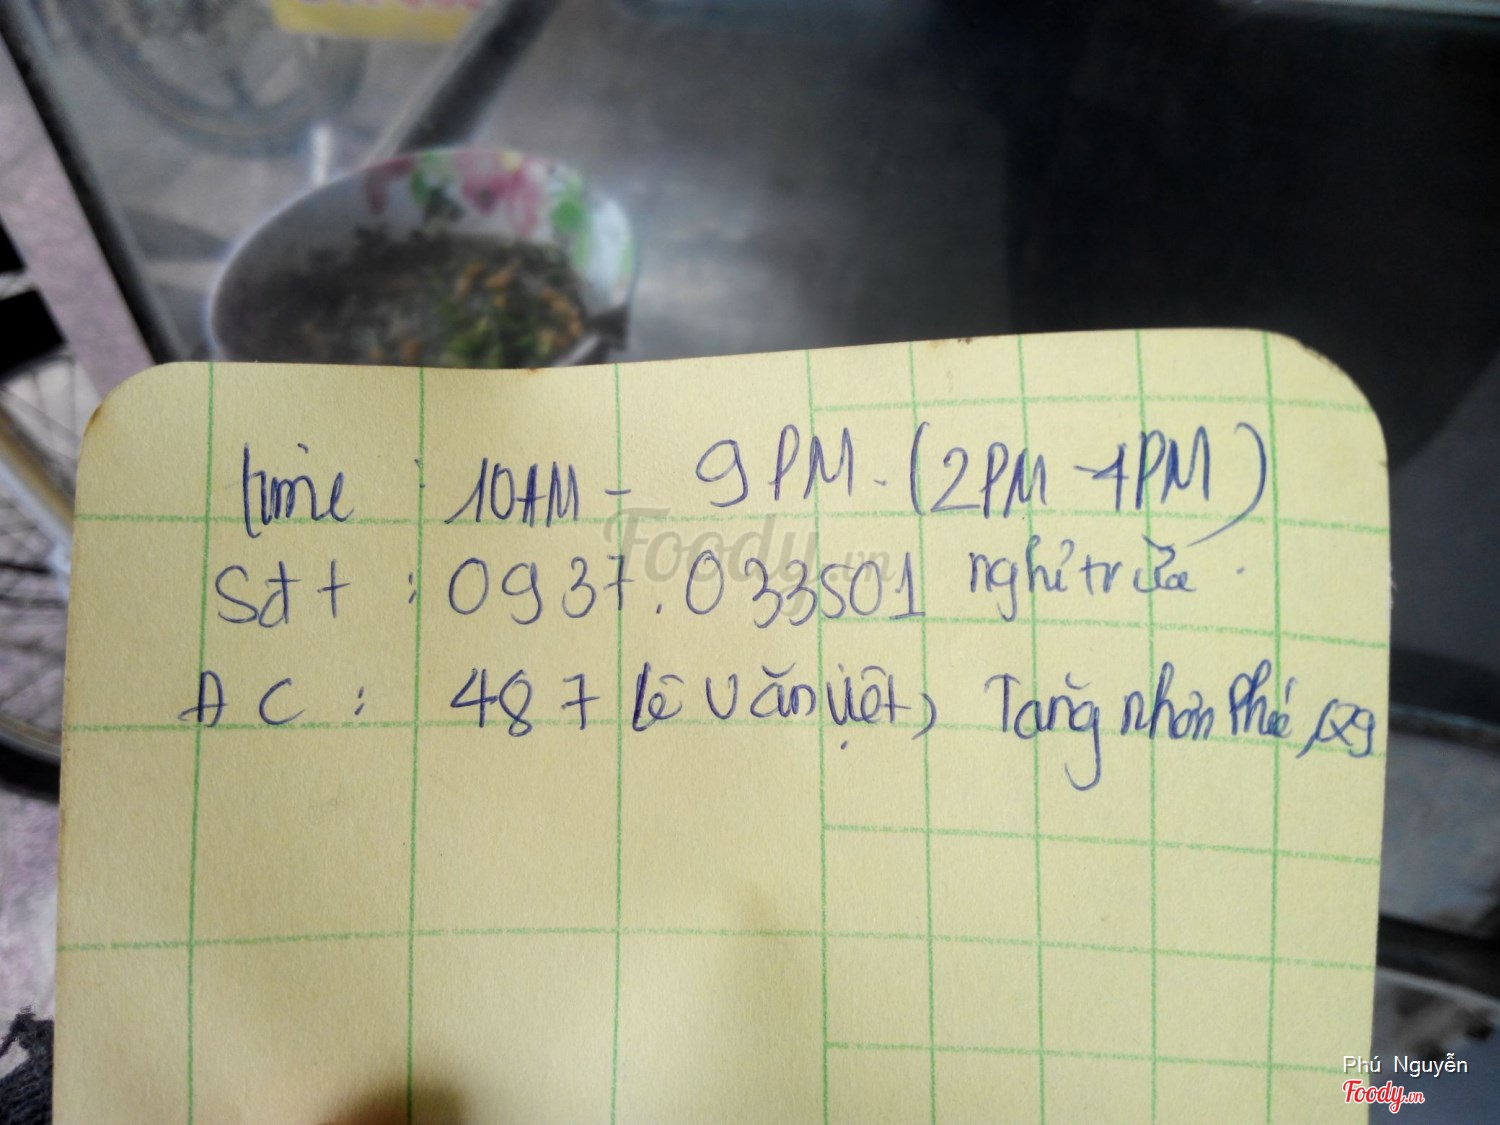 time : 10AM - 9PM. (2PM - 4PM)
Sđt : 0937.033501 nghỉ trưa.
ĐC : 487 Lê Văn Việt, Tăng nhơn Phú, Q9
Foody.vn
Phú Nguyễn
Foody.vn